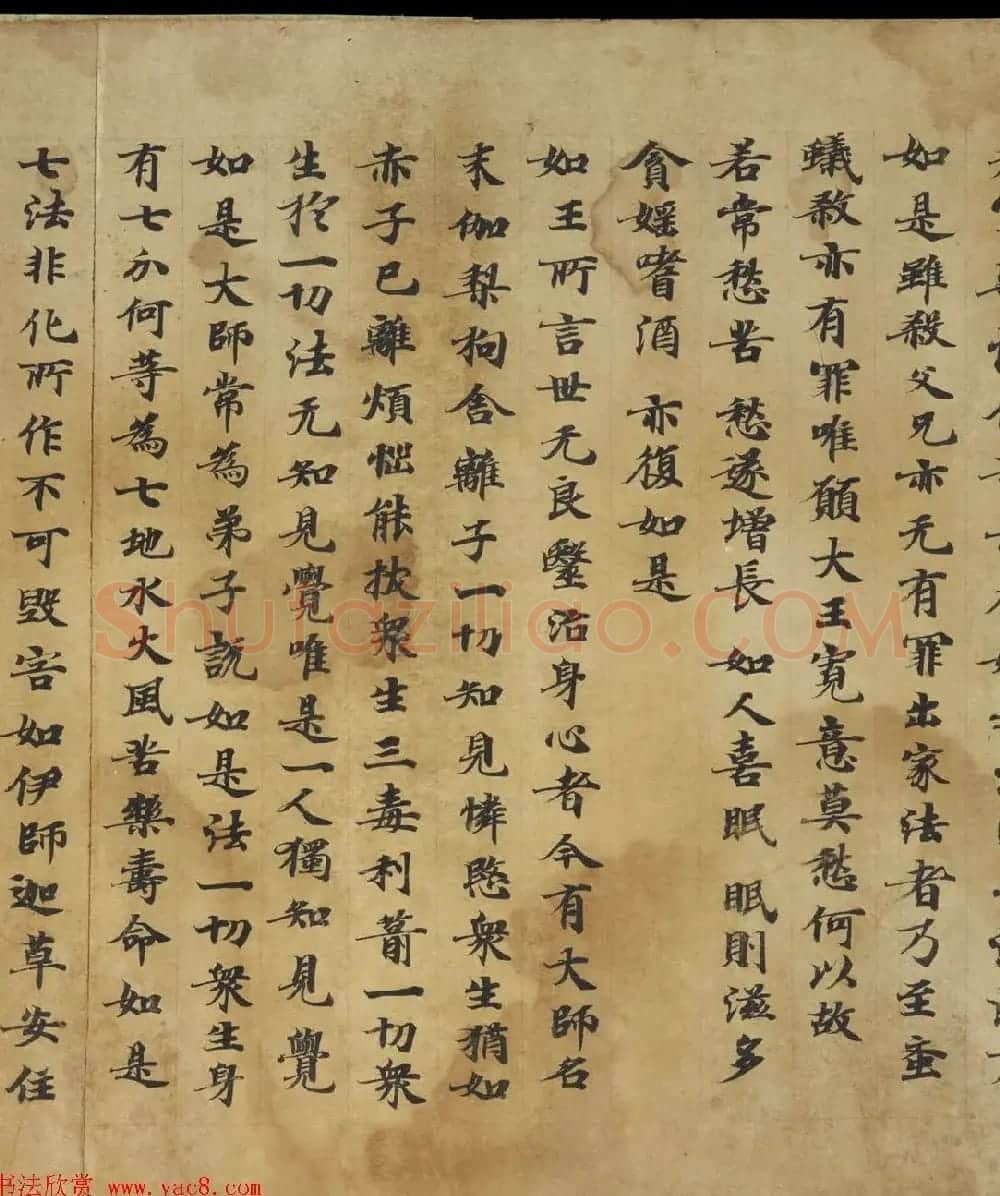 如是雖殺父兄亦无有罪出家法者乃至蚤
蟻殺亦有罪唯願大王寬意莫愁何以故
若常愁苦 愁遂增長 如人喜眠 眠則滋多
貪婬嗜酒 亦復如是
如王所言世无良毉治身心者今有大師名
末伽梨拘舍離子一切知見憐愍衆生猶如
赤子已離煩惱能拔衆生三毒利箭一切衆
生於一切法无知見覺唯是一人獨知見覺
如是大師常為弟子說如是法一切衆生身
有七分何等為七地水火風苦樂壽命如是
七法非化所作不可毀害如伊師迦草安住
Shufaziliao.COM
书法欣赏 www.yac8.com